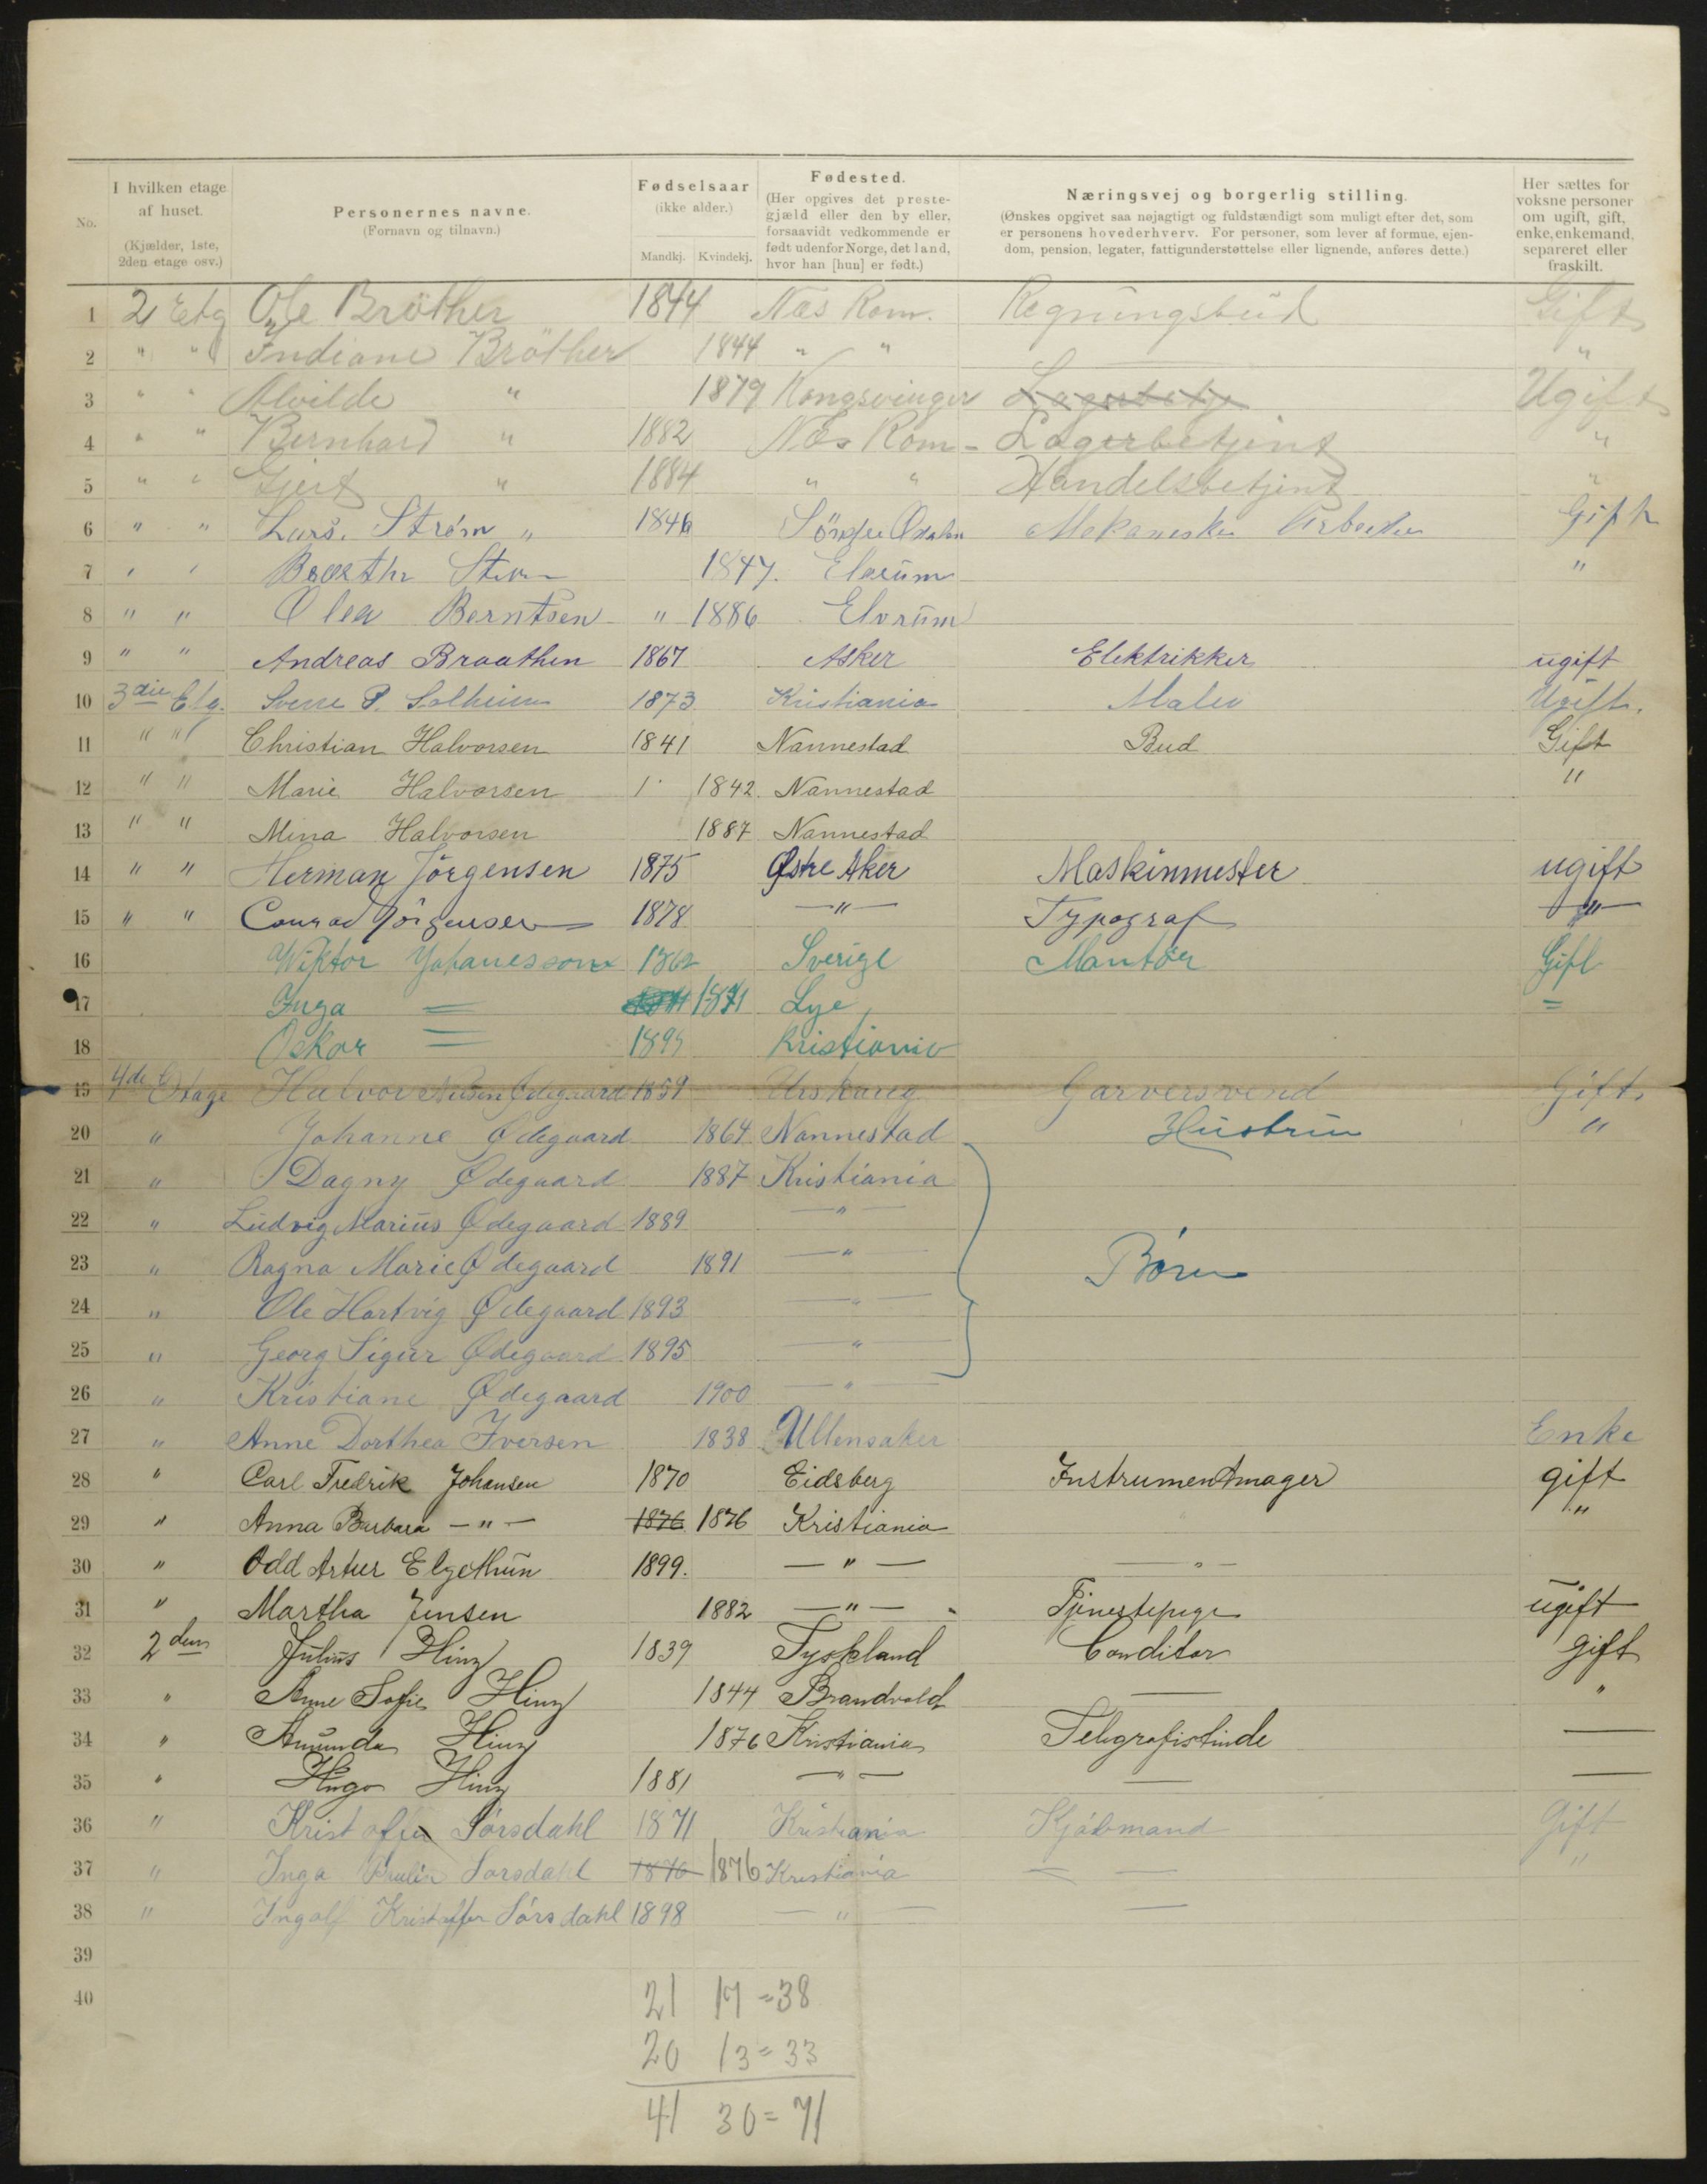 No.
I hvilken etage af huset.
(Kjælder, 1ste, 2den etage osv.)
Personernes navne.
(Fornavn og tilnavn.)
Fødselsaar
(ikke alder.)
Mandkj. Kvindekj.
Fødested.
(Her opgives det prestegjæld eller den by eller, forsaavidt vedkommende er født udenfor Norge, det land, hvor han [hun] er født.)
Næringsvej og borgerlig stilling.
(Ønskes opgivet saa nøjagtigt og fuldstændigt som muligt efter det, som er personens hovederhverv. For personer, som lever af formue, ejendom, pension, legater, fattigunderstøttelse eller lignende, anføres dette.)
Her sættes for voksne personer om ugift, gift, enke, enkemand, separeret eller fraskilt.
1 2 Etg Ole Bröther 1844 Næs Rom. Regningsbud Gift
2 " " Indiane Bröther 1844 " " "
3 " " Alvilde " 1879 Kongsvinger Lagerbetj Ugift
4 " " Bernhard " 1882 Næs Rom- Lagerbetjent "
5 " " Gjert " 1884 " " Handelsbetjent "
6 " " Lars. Strøm " 1846 Söndre Mekaniske Arbeider Gift
7 " " 1847. Elverum "
8 " " Olea Berntsen " 1886 Elvrum
9 " " Andreas Braathen 1867 Asker Elektrikker ugift
10 3die Etg. P. Solheim 1873 Kristiania Maler Ugift.
11 " " Christian Halvorsen 1841 Nannestad Bud Gift
12 " " Marie Halvorsen 1 1842. Nannestad "
13 " " Mina Halvorsen 1887 Nannestad
14 " " Herman Jörgensen 1875 Østre Aker Maskinmester ugift
15 " " Conrad Jörgensen 1878 — " — Typograf — " —
16 Wiktor Yohanesson 1862 Sverige Mantör Gift
17 Inga = 1871 1871 Lye =
18 Oskar = 1899 Kristiania
19 4de Etage Halvor Nilsen Ødegaard 1859 Urskaug Garversvend Gift.
20 " Johanne Ødegaard 1864 Nannestad Hüstrü "
21 " Dagny Ødegaard 1887 Kristiania
22 " Lüdvig Mariüs Ødegaard 1889 — " —
23 " Ragna Marie Ødegaard 1891 — " — Börn
24 " Ole Hartvig Ødegaard 1893 — " —
25 " Georg Sigür Ødegaard 1895 — " —
26 " Kristiane Ødegaard 1900 — " —
27 " Anne Dorthea Iversen 1838 Ullensaker Enke
28 " Carl Fredrik Johansen 1870 Eidsberg Instrumentmager gift
29 " Anna Barbara — " — 1876 1876 Kristiania " "
30 " Odd Artur Elgethün 1899. — " — — " —
31 " Martha Jensen 1882 — " — Tjenestepige ügift
32 2den Juliüs Hinz 1839 Tyskland Conditor gift
33 " Anne Sofie Hinz 1844 Brandvold — "
34 " Amunda Hinz 1876 Kristiania Telegrafistinde —
35 " Hügo Hinz 1881 — " — — —
36 " Kristoffer Sörsdahl 1871 Kristiania Kjöbmand Gift
37 " Inga Paulin Sorsdahl 1876 1876 Kristiania — — "
38 " Ingolf Kristoffer Sörsdahl 1898 — " — —
39
40
21 17 = 38
20 13 = 33
41 30 = 71